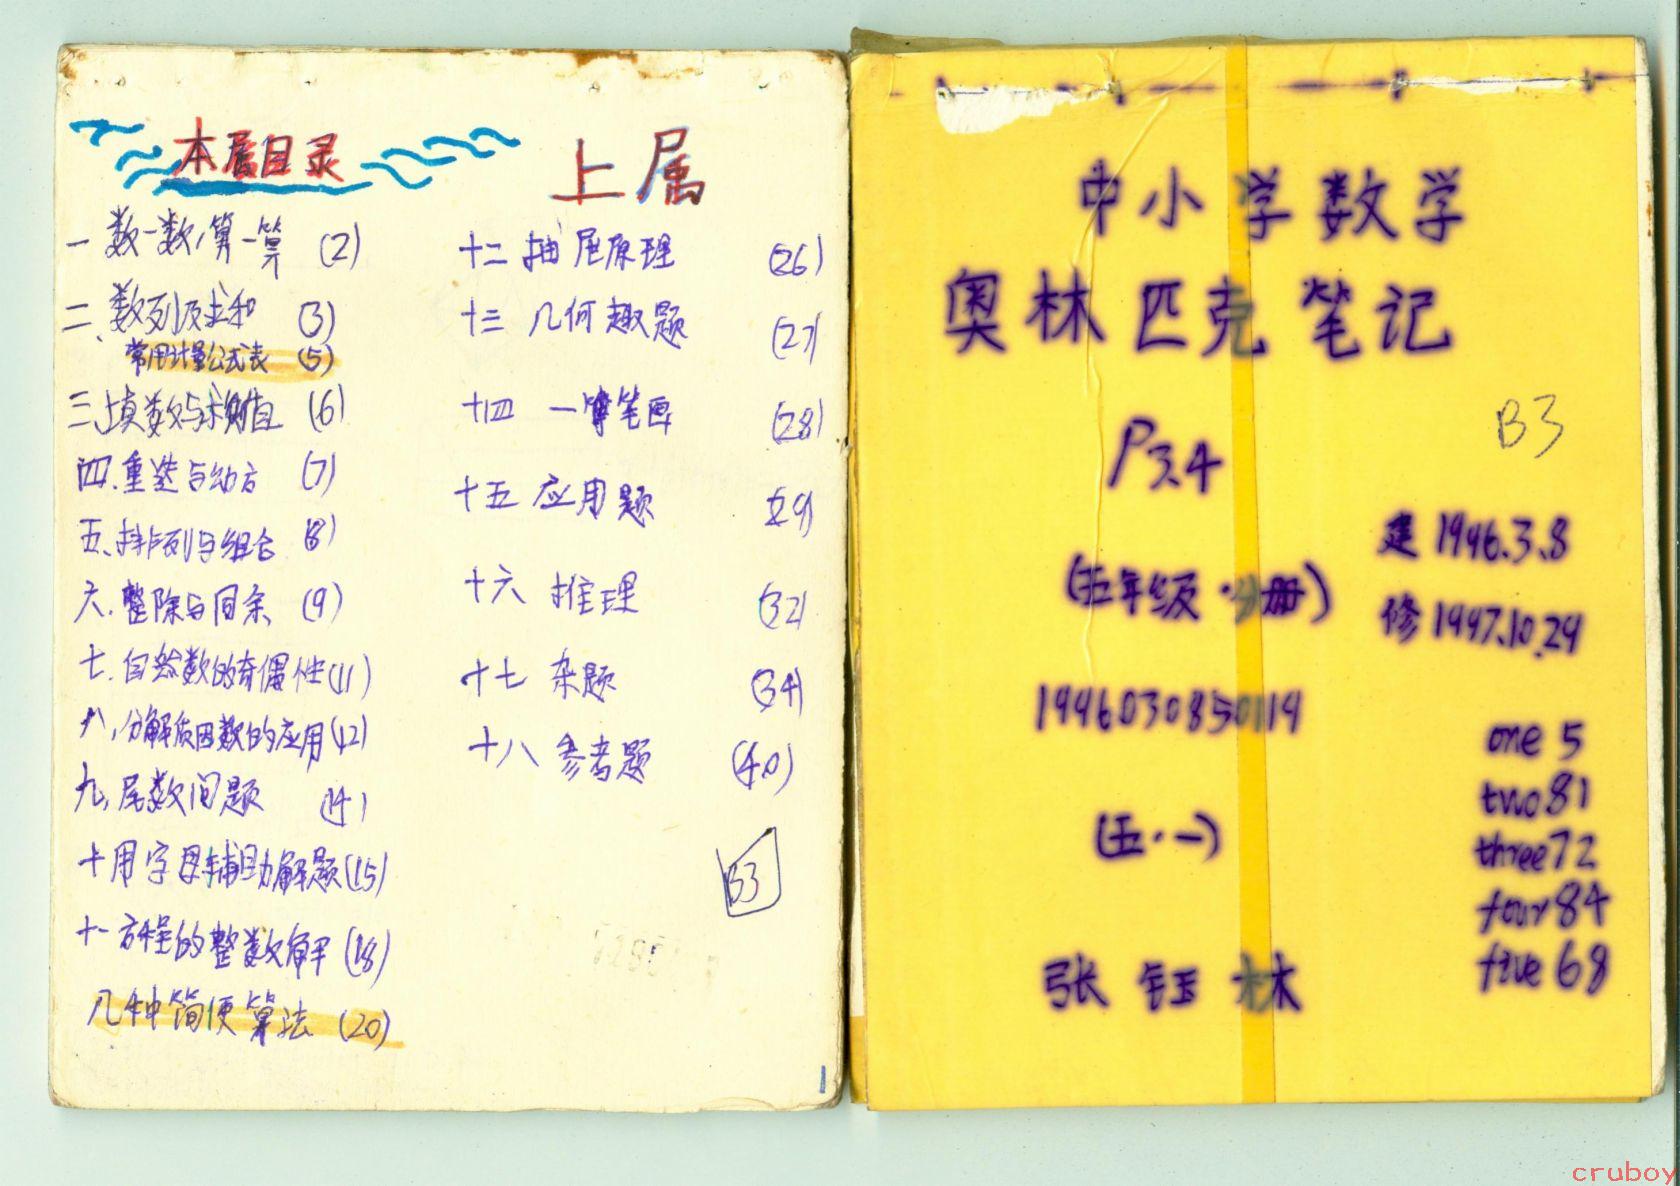 本属目录
上属
一 数一数,算一算 (2)
二、数列及求和 (3)
常用计量公式表 (5)
三、填数与求数值 (6)
四.重选与幼方 (7)
五.排列与组合 (8)
六.整除与同余 (9)
七.自然数的奇偶性 (11)
八,分解质因数的应用 (12)
九,尾数问题 (14)
十用字母辅助解题 (15)
十一方程的整数解 (18)
几种简便算法 (20)
十二 抽屉原理 (26)
十三 几何趣题 (27)
十四 一笔画 (28)
十五 应用题 (29)
十六 推理 (32)
十七 杂题 (34)
十八 参考题 (40)
B3
中小学数学
奥林匹克笔记
P3.4
B3
建 1996.3.8
(五年级·分册)
修 1997.10.29
1996030850119
one 5
two 81
three 72
four 84
five 68
(五·一)
张钰林
cruboy